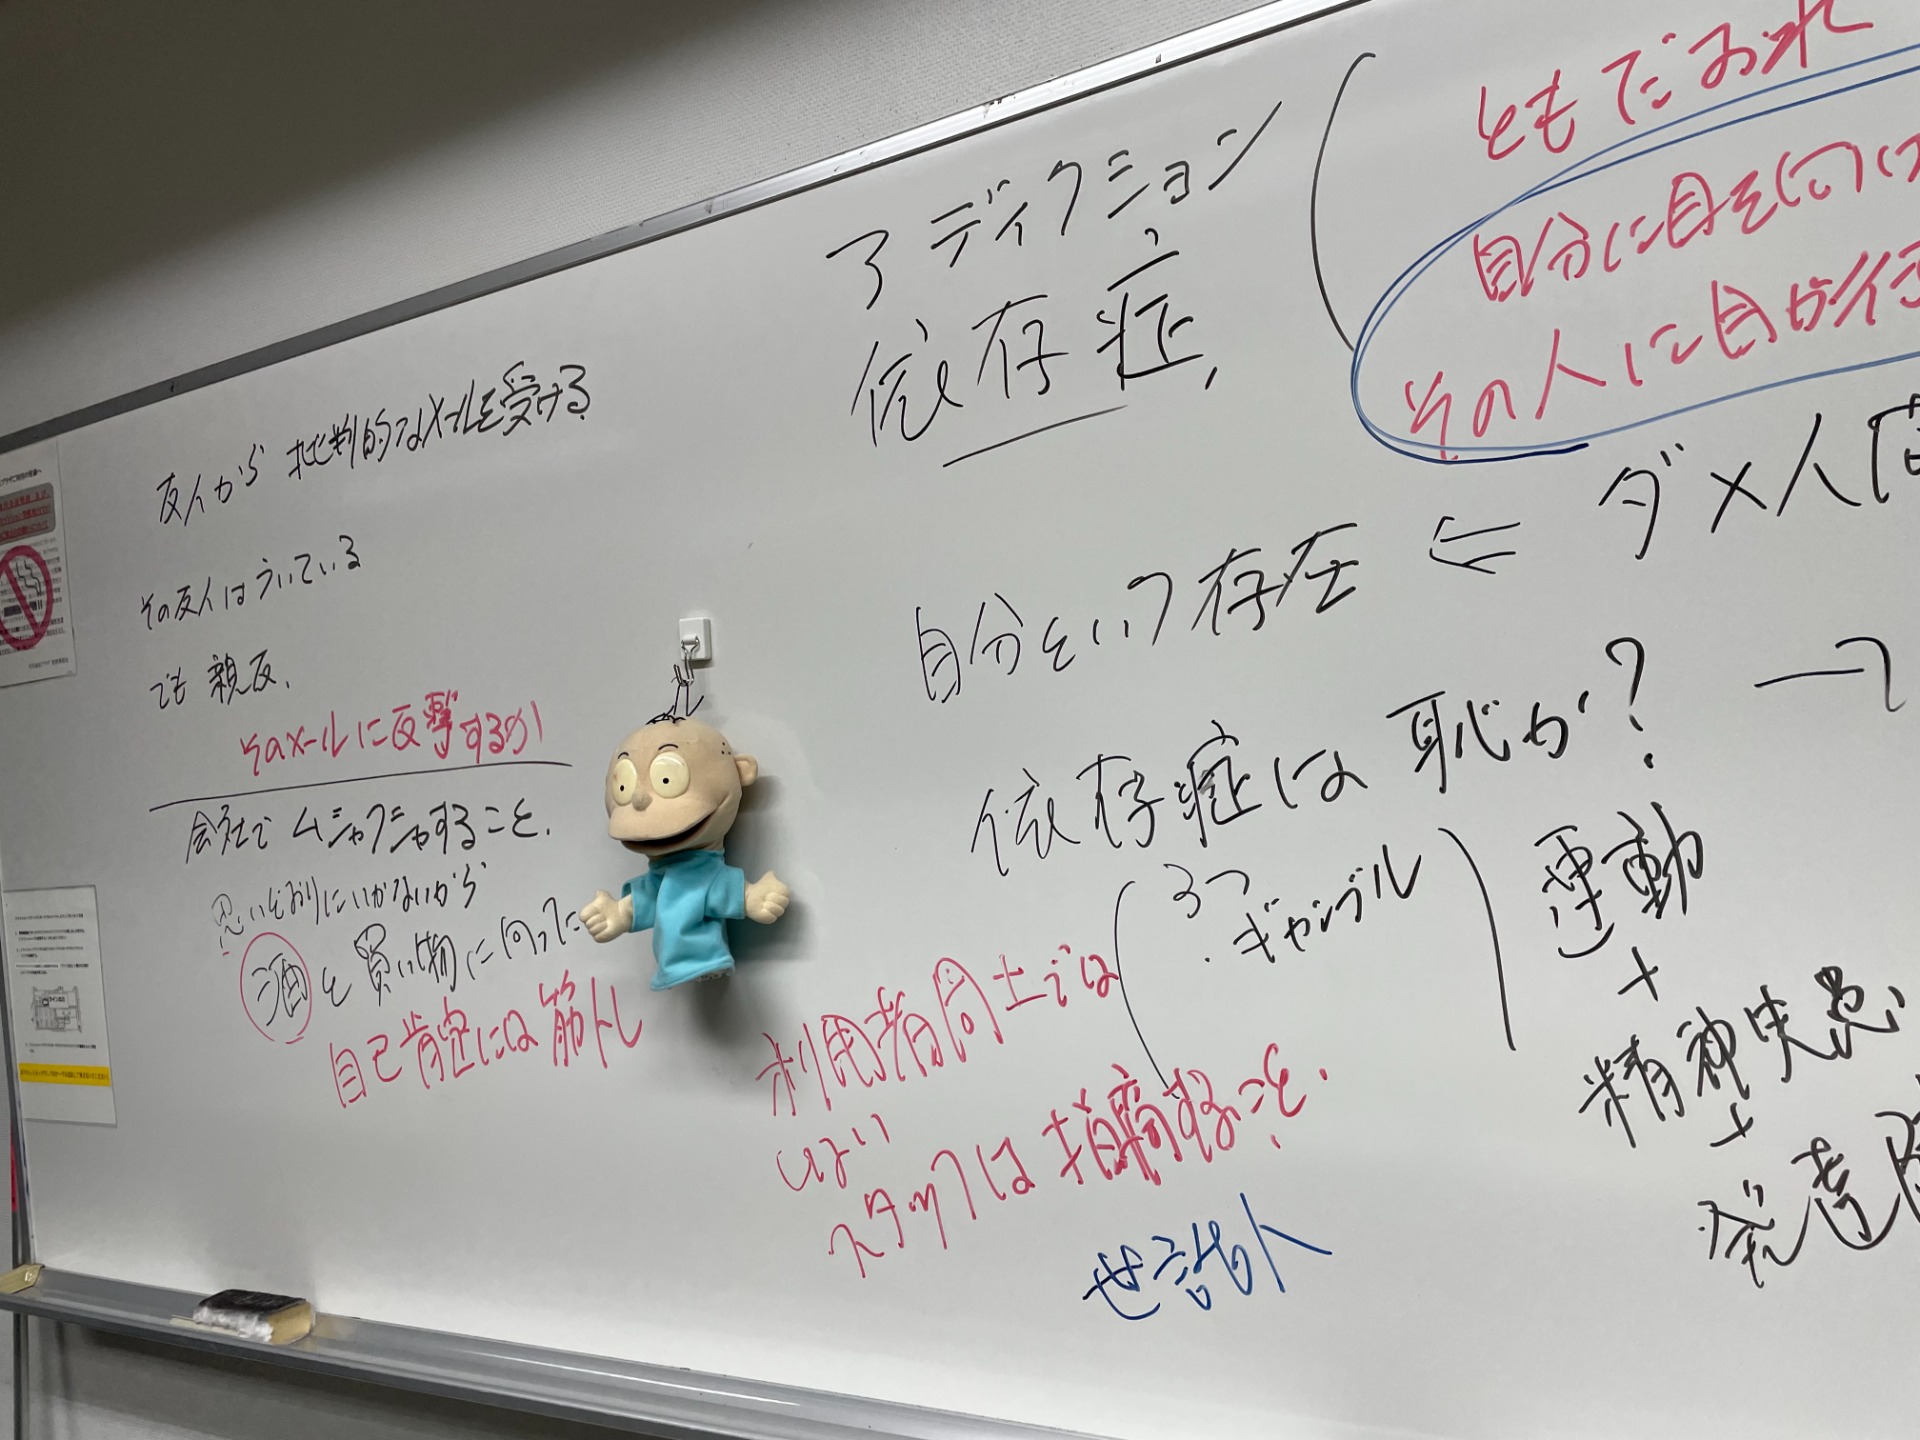 友人から 批判的なメールを受ける
その友人はういている
でも 親友、
そのメールに反撃するか
会社で ムシャクシャすること、
思いどおりにいかないから
酒と買い物に向った
自己肯定には筋トレ
アディクション
依存症、
ともだおれ
自分に目を向け
その人に目が行
自分という存在 ⇐ ダメ人間
依存症は 恥か?
うつ
・ギャンブル
運動
+
精神疾患
+
発達障
利用者同士では
しない
スタッフは 指摘すること、
世話人